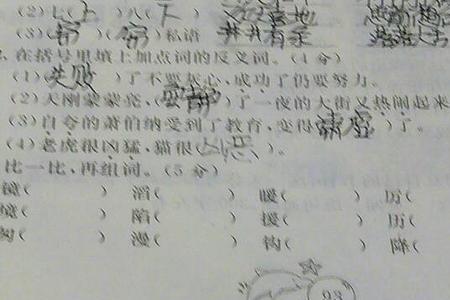 (2)七(上)八(下)
(3)(窃)(窃)私语 井井有条
在括号里填上加点词的反义词。(4分)
(1)(失败)了不要灰心,成功了仍要努力。
(2)天刚蒙蒙亮,( )了一夜的大街又热闹起来
(3)自夸的萧伯纳受到了教育,变得( )了。
(4)老虎很凶猛,猫很( )。
比一比,再组词。(5分)
镜( ) 滔( ) 暖( ) 厉( )
境( ) 陷( ) 援( ) 历( )
( ) 漫( ) 钩( ) 降( )
93